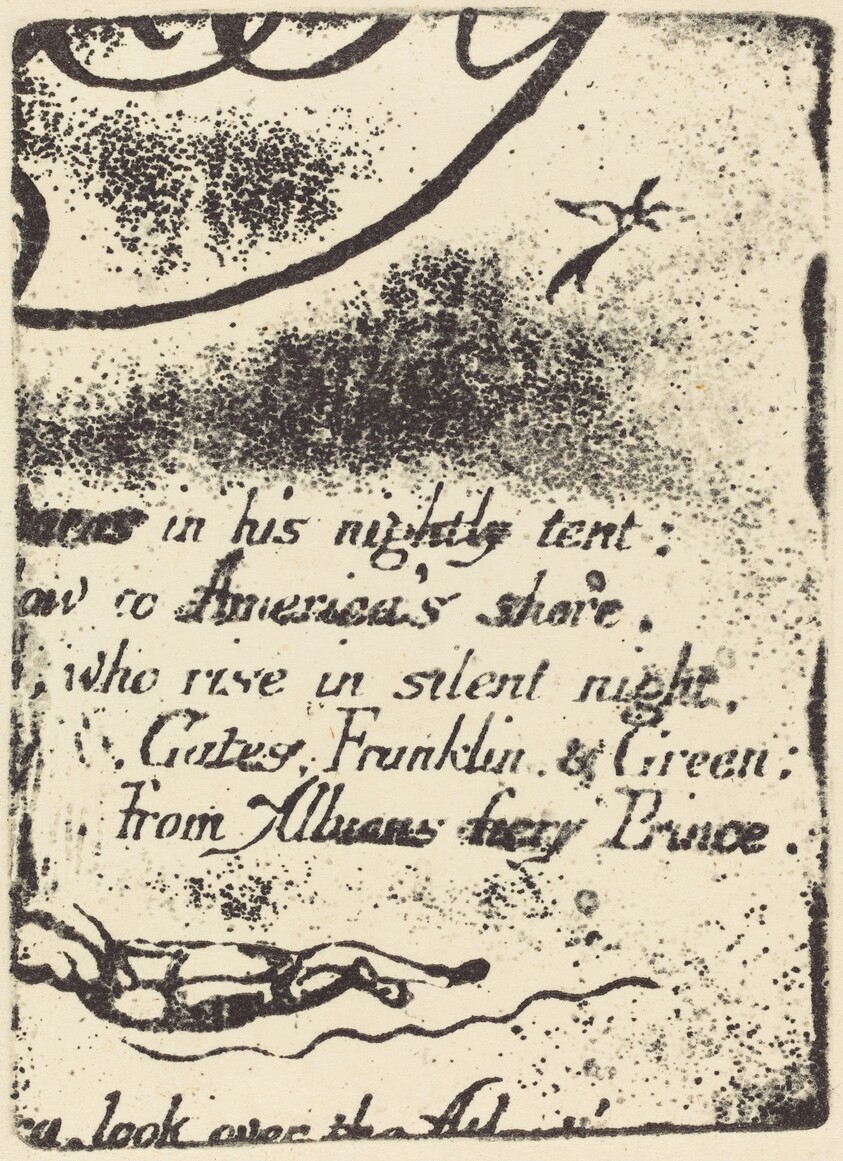 in his nightly tent :
to America's shore.
, who rise in silent night,
Gates, Franklin, & Green;
From Albions fiery Prince.
look over the